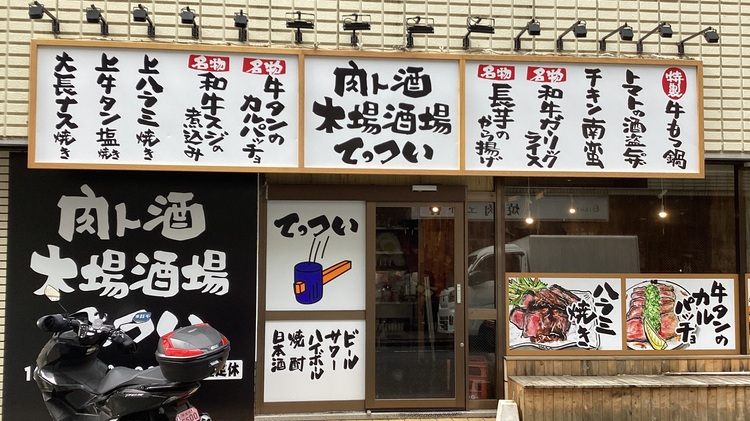 特製
牛もつ鍋
トマトの酒盗チーズ
チキン南蛮
名物
和牛ガーリック
ライス
名物
長芋の
から揚げ
肉ト酒
木場酒場
てっつい
名物
牛タンの
カルパッチョ
名物
和牛スジの
煮込み
上ハラミ焼き
上牛タン塩焼き
大長ナス焼き
肉ト酒
木場酒場
てっつい
てっつい
ビール
サワー
ハイボール
焼酎
日本酒
ハラミ
焼き
牛タンの
カル
パッチョ